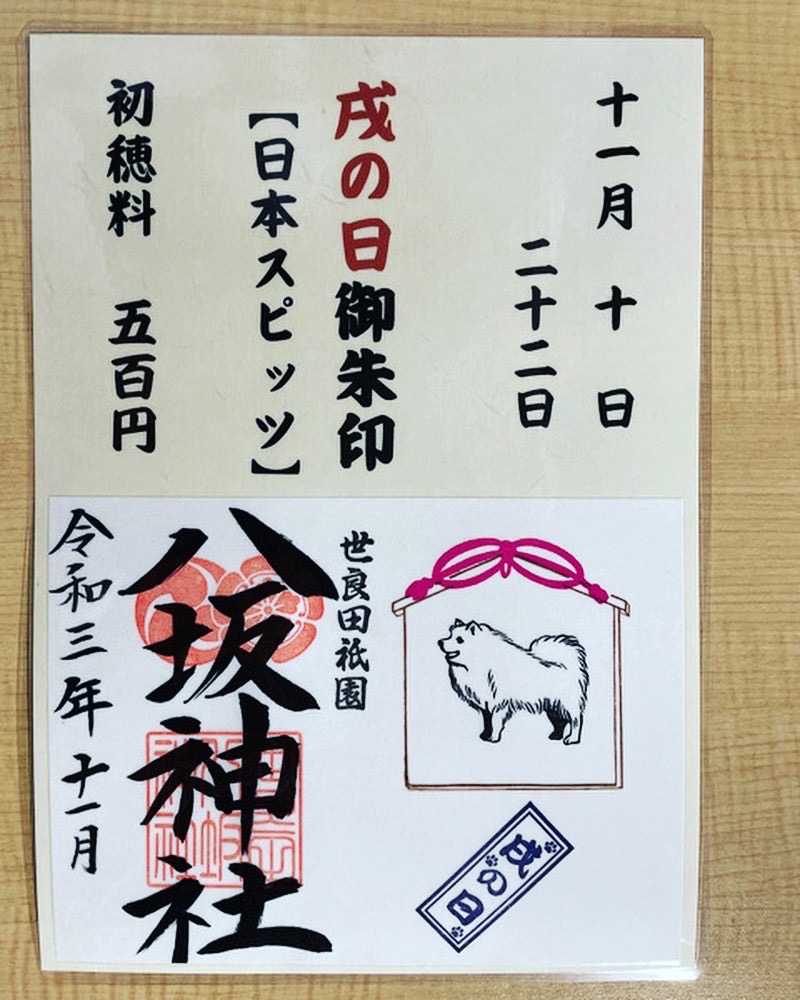 十一月 十 日
二十二日
戌の日御朱印
【日本スピッツ】
初穂料 五百円
世良田祇園
八坂神社
令和三年十一月
戌の日